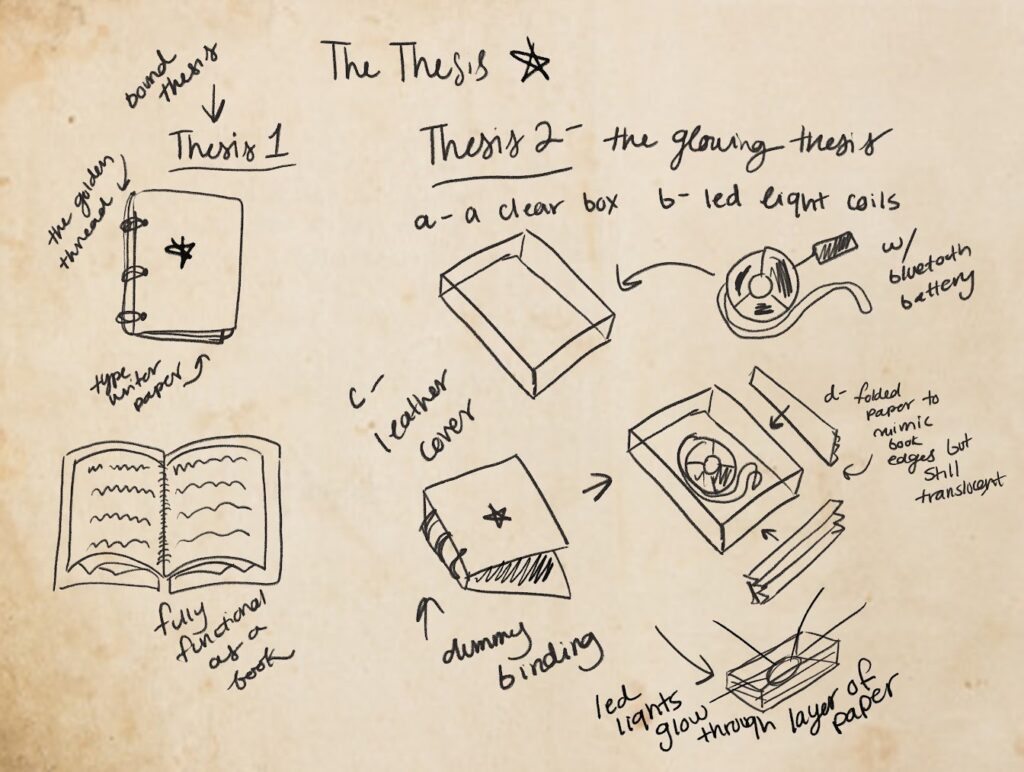 The Thesis
bound
thesis
Thesis 1
the golden
thread
type
writer
paper
fully
functional
as a
book
Thesis 2 - the glowing thesis
a - a clear box
b - led light coils
w/
bluetooth
battery
c -
leather
cover
dummy
binding
d - folded
paper to
mimic
book
edges but
still
translucent
led
lights
glow
through layer of
paper